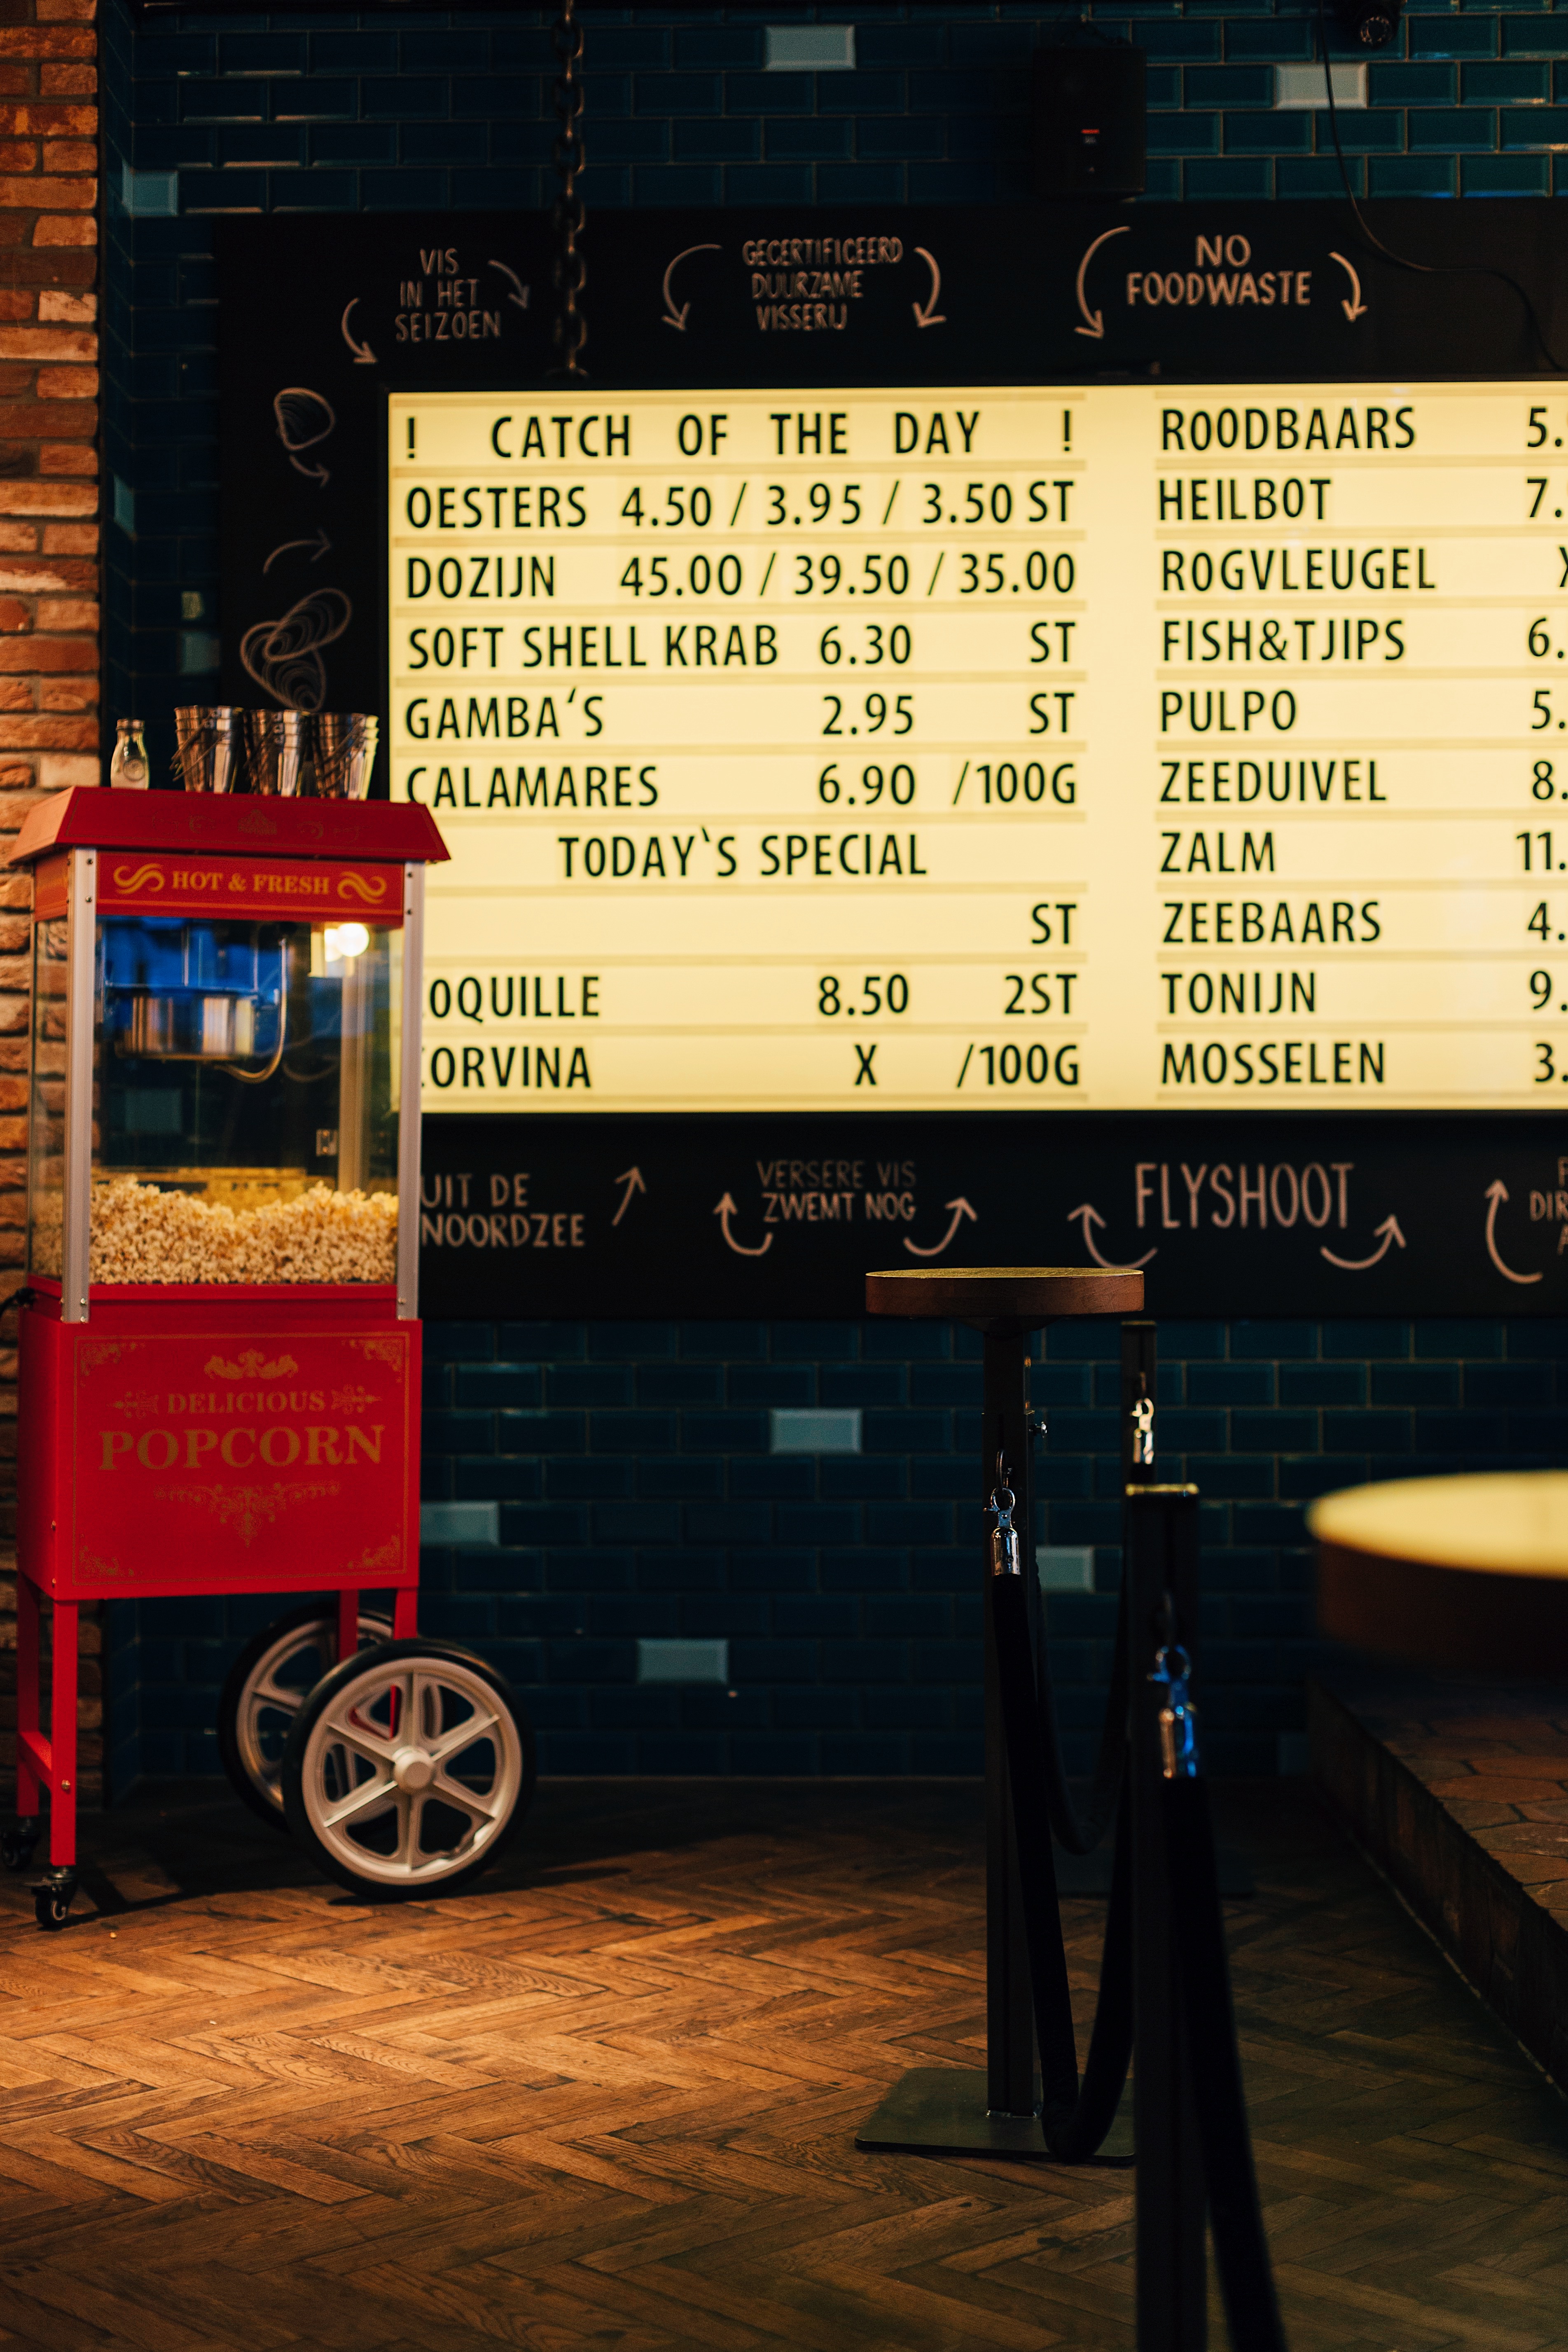 VIS
IN HET
SEIZOEN
GECERTIFICEERD
DUURZAME
VISSERIJ
NO
FOODWASTE
! CATCH OF THE DAY !
OESTERS 4.50 / 3.95 / 3.50 ST
DOZIJN 45.00 / 39.50 / 35.00
SOFT SHELL KRAB 6.30 ST
GAMBA‘S 2.95 ST
CALAMARES 6.90 /100G
TODAY‘S SPECIAL
ST
OQUILLE 8.50 2ST
ORVINA X /100G
ROODBAARS 5.
HEILBOT 7.
ROGVLEUGEL
FISH&TJIPS 6.
PULPO 5.
ZEEDUIVEL 8.
ZALM 11.
ZEEBAARS 4.
TONIJN 9.
MOSSELEN 3.
UIT DE
NOORDZEE
VERSERE VIS
ZWEMT NOG
FLYSHOOT
DIR
HOT & FRESH
DELICIOUS
POPCORN